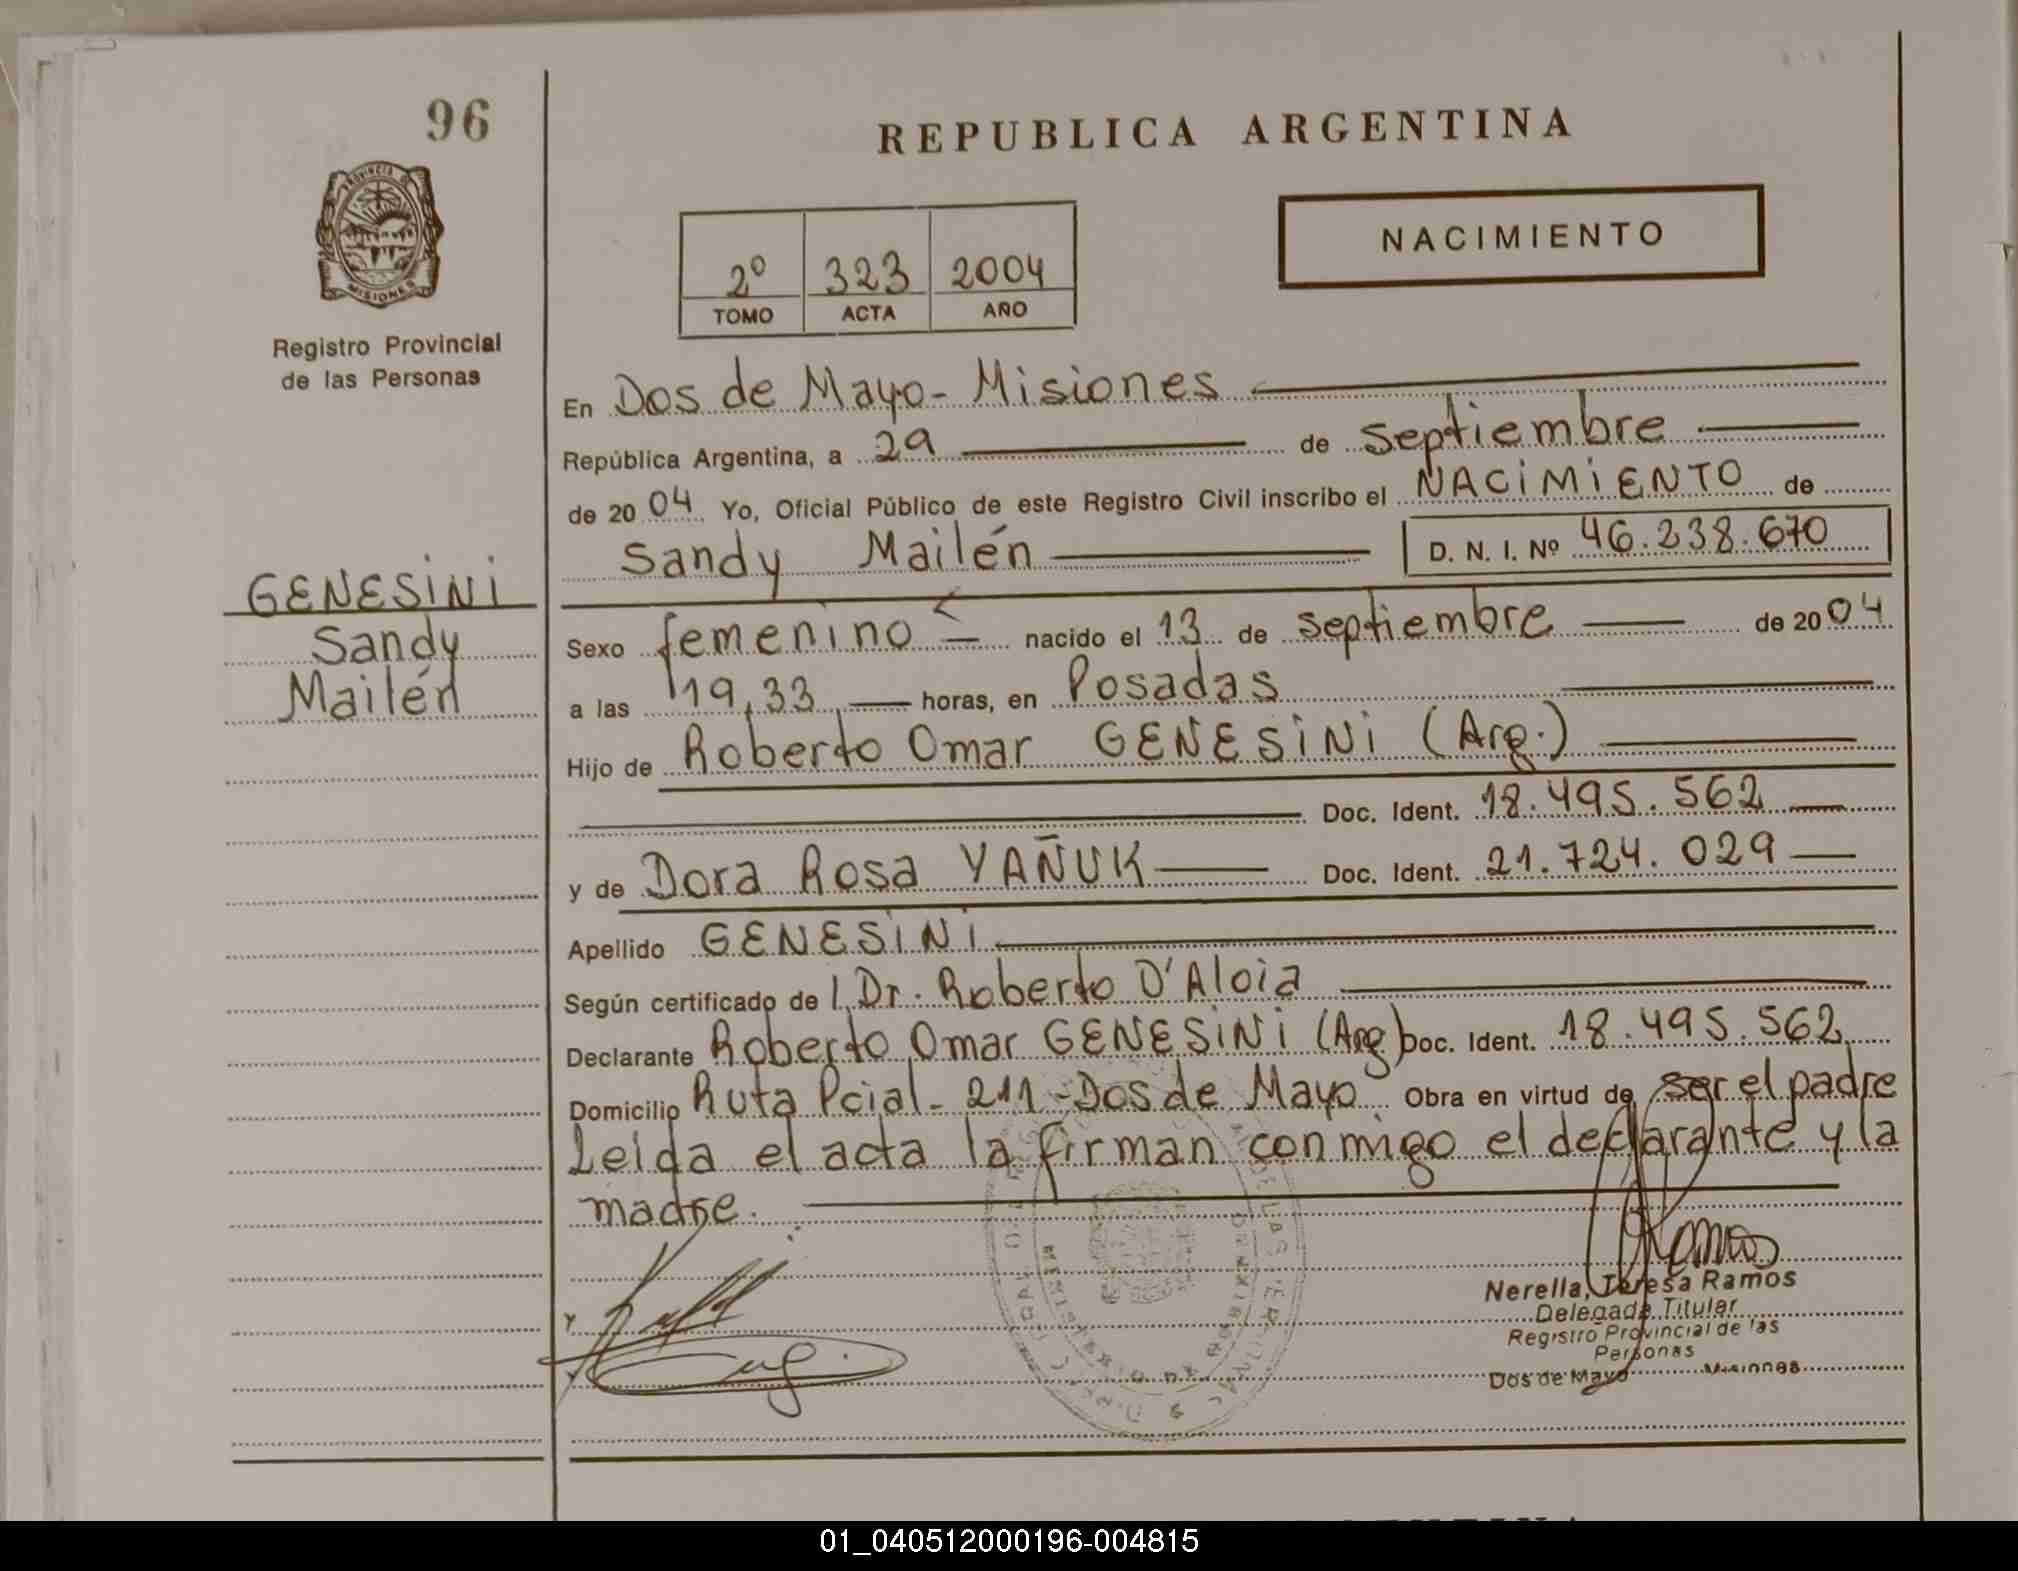 96
REPUBLICA ARGENTINA
PROVINCIA DE
MISIONES
Registro Provincial
de las Personas
NACIMIENTO
2º 323 2004
TOMO ACTA AÑO
En Dos de Mayo - Misiones
República Argentina, a 29 de septiembre
de 2004 Yo, Oficial Público de este Registro Civil inscribo el NACIMIENTO de
Sandy Mailén D. N. I. Nº 46.238.670
GENESINI
Sandy
Mailén
Sexo femenino nacido el 13 de septiembre de 2004
a las 19,33 horas, en Posadas
Hijo de Roberto Omar GENESINI (Arg.)
Doc. Ident. 18.495.562
y de Dora Rosa YAÑUK Doc. Ident. 21.724.029
Apellido GENESINI
Según certificado de l Dr. Roberto D'Aloia
Declarante Roberto Omar GENESINI (Arg) Doc. Ident. 18.495.562
Domicilio Ruta Pcial - 211 - Dos de Mayo Obra en virtud de ser el padre
Leida el acta la firman conmigo el declarante y la
madre.
Nerella, Teresa Ramos
Delegada Titular
Registro Provincial de las
Personas
Dos de Mayo Misiones
01_040512000196-004815